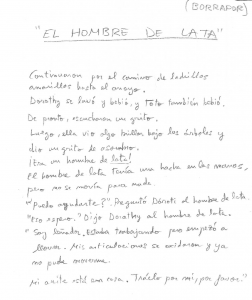 (BORRADOR)
"EL HOMBRE DE LATA"
Continuaron por el camino de ladrillos
amarillos hasta el arroyo.
Dorothy se lavó y bebió, y Toto también bebió.
De pronto, escucharon un grito.
Luego, ella vio algo brillar bajo los árboles y
dio un grito de asombro.
¡Era un hombre de lata!
El hombre de lata tenía una hacha en las manos,
pero no se movía para nada.
"¿Puedo ayudarte?" Preguntó Doroti al hombre de lata.
"Eso espero." Dijo Dorothy al hombre de lata.
"Soy leñador, Estaba trabajando pero empezó a
llover. Mis articulaciones se oxidaron y ya
no pude moverme.
Mi aceite está una casa. Tráelo por mi, por favor."